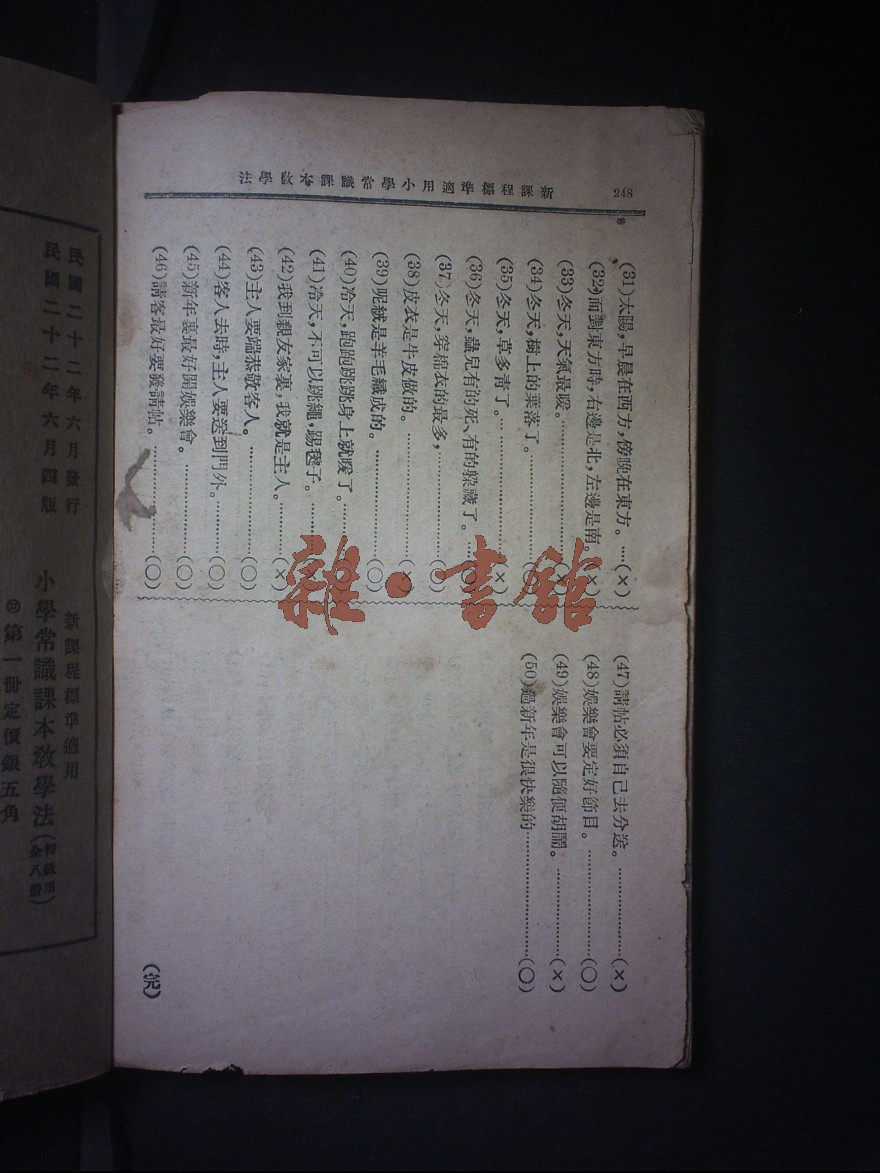 新課程標準適用小學常識課本敎學法
248
(31)太陽，早晨在西方，傍晚在東方。…(×)
(32)面對東方時，右邊是北，左邊是南…(×)
(33)冬天，天氣最暖。…………(×)
(34)冬天，樹上的葉落了。…………(○)
(35)冬天，草多靑了。…………(×)
(36)冬天，蟲兒有的死、有的躲藏了。…(○)
(37)冬天，穿棉衣的最多，…………(○)
(38)皮衣是牛皮做的。…………(×)
(39)呢絨是羊毛織成的。…………(○)
(40)冷天，跑跑跳跳身上就暖了。……(○)
(41)冷天，不可以跳繩，踢毽子。……(×)
(42)我到親友家裏，我就是主人。……(×)
(43)主人要端恭敬客人。…………(○)
(44)客人去時，主人要送到門外。……(○)
(45)新年裏最好開娛樂會。…………(○)
(46)請客最好要發請帖。…………(○)
(47)請帖必須自己去分送。…………(×)
(48)娛樂會要定好節目。…………(○)
(49)娛樂會可以隨便胡鬧。…………(×)
(50)過新年是很快樂的…………(○)
(完)
雜·書館
民國二十二年六月發行
民國二十二年六月四版
新課程標準適用
小學常識課本敎學法(初級用 全八冊)
第一冊定價銀五角